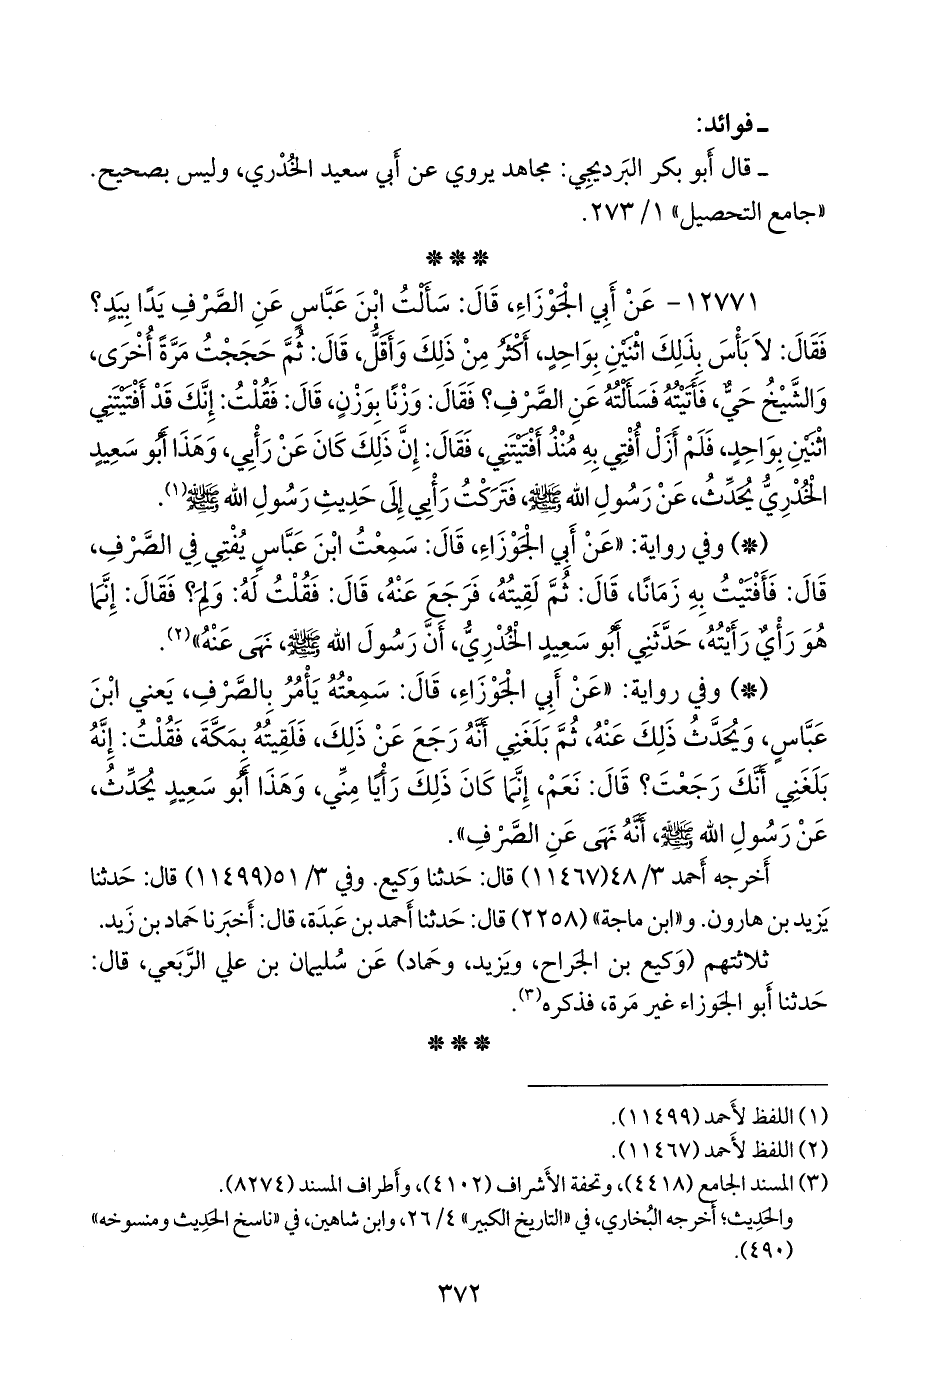 ـ فوائد:
ـ قال أَبو بكر البَرديجي: مجاهد يروي عن أَبي سعيد الخُدْري، وليس بصحيح.
«جامع التحصيل» ١/ ٢٧٣.
* * *
١٢٧٧١- عَنْ أَبِي الْجَوْزَاءِ، قَالَ: سَأَلْتُ ابْنَ عَبَّاسٍ عَنِ الصَّرْفِ يَدًا بِيَدٍ؟
فَقَالَ: لاَ بَأْسَ بِذَلِكَ اثْنَيْنِ بِوَاحِدٍ، أَكْثَرُ مِنْ ذَلِكَ وَأَقَلُّ، قَالَ: ثُمَّ حَجَجْتُ مَرَّةً أُخْرَى،
وَالشَّيْخُ حَيٌّ، فَأَتَيْتُهُ فَسَأَلْتُهُ عَنِ الصَّرْفِ؟ فَقَالَ: وَزْنًا بِوَزْنٍ، قَالَ: فَقُلْتُ: إِنَّكَ قَدْ أَفْتَيْتَنِي
اثْنَيْنِ بِوَاحِدٍ، فَلَمْ أَزَلْ أُفْتِي بِهِ مُنْذُ أَفْتَيْتَنِي، فَقَالَ: إِنَّ ذَلِكَ كَانَ عَنْ رَأْيِي، وَهَذَا أَبُو سَعِيدٍ
الْخُدْرِيُّ يُحَدِّثُ، عَنْ رَسُولِ الله ﷺ، فَتَرَكْتُ رَأْيِي إِلَى حَدِيثِ رَسُولِ الله ﷺ(١).
(*) وفي رواية: «عَنْ أَبِي الْجَوْزَاءِ، قَالَ: سَمِعْتُ ابْنَ عَبَّاسٍ يُفْتِي فِي الصَّرْفِ،
قَالَ: فَأَفْتَيْتُ بِهِ زَمَانًا، قَالَ: ثُمَّ لَقِيتُهُ، فَرَجَعَ عَنْهُ، قَالَ: فَقُلْتُ لَهُ: وَلِمَ؟ فَقَالَ: إِنَّمَا
هُوَ رَأْيٌ رَأَيْتُهُ، حَدَّثَنِي أَبُو سَعِيدٍ الْخُدْرِيُّ، أَنَّ رَسُولَ الله ﷺ، نَهَى عَنْهُ»(٢).
(*) وفي رواية: «عَنْ أَبِي الْجَوْزَاءِ، قَالَ: سَمِعْتُهُ يَأْمُرُ بِالصَّرْفِ، يَعني ابْنَ
عَبَّاسٍ، وَيُحَدَّثُ ذَلِكَ عَنْهُ، ثُمَّ بَلَغَنِي أَنَّهُ رَجَعَ عَنْ ذَلِكَ، فَلَقِيتُهُ بِمَكَّةَ، فَقُلْتُ: إِنَّهُ
بَلَغَنِي أَنَّكَ رَجَعْتَ؟ قَالَ: نَعَمْ، إِنَّمَا كَانَ ذَلِكَ رَأْيًا مِنِّي، وَهَذَا أَبُو سَعِيدٍ يُحَدِّثُ،
عَنْ رَسُولِ الله ﷺ، أَنَّهُ نَهَى عَنِ الصَّرْفِ».
أَخرجه أَحمد ٣/ ٤٨(١١٤٦٧) قال: حَدثنا وَكيع. وفي ٣/ ٥١(١١٤٩٩) قال: حَدثنا
يَزيد بن هارون. و«ابن ماجة» (٢٢٥٨) قال: حَدثنا أَحمد بن عَبدَة، قال: أَخبَرنا حَماد بن زَيد.
ثلاثتهم (وَكيع بن الجَراح، ويَزيد، وحَماد) عَن سُليمان بن علي الرَّبَعي، قال:
حَدثنا أَبو الجَوزاء غير مَرة، فذكره(٣).
* * *
(١) اللفظ لأَحمد (١١٤٩٩).
(٢) اللفظ لأَحمد (١١٤٦٧).
(٣) المسند الجامع (٤٤١٨)، وتحفة الأشراف (٤١٠٢)، وأَطراف المسند (٨٢٧٤).
والحَديث؛ أَخرجه البُخاري، في «التاريخ الكبير» ٤/ ٢٦، وابن شاهين، في «ناسخ الحَديث ومنسوخه»
(٤٩٠).
٣٧٢